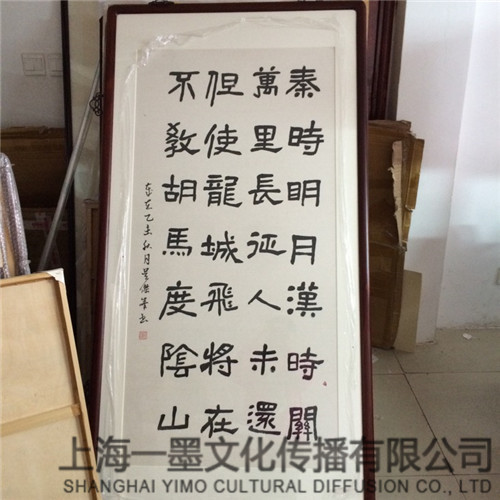 秦時明月漢時關
萬里長征人未還
但使龍城飛將在
不教胡馬度陰山
乙未秋月
上海一墨文化传播有限公司
SHANGHAI YIMO CULTURAL DIFFUSION CO., LTD